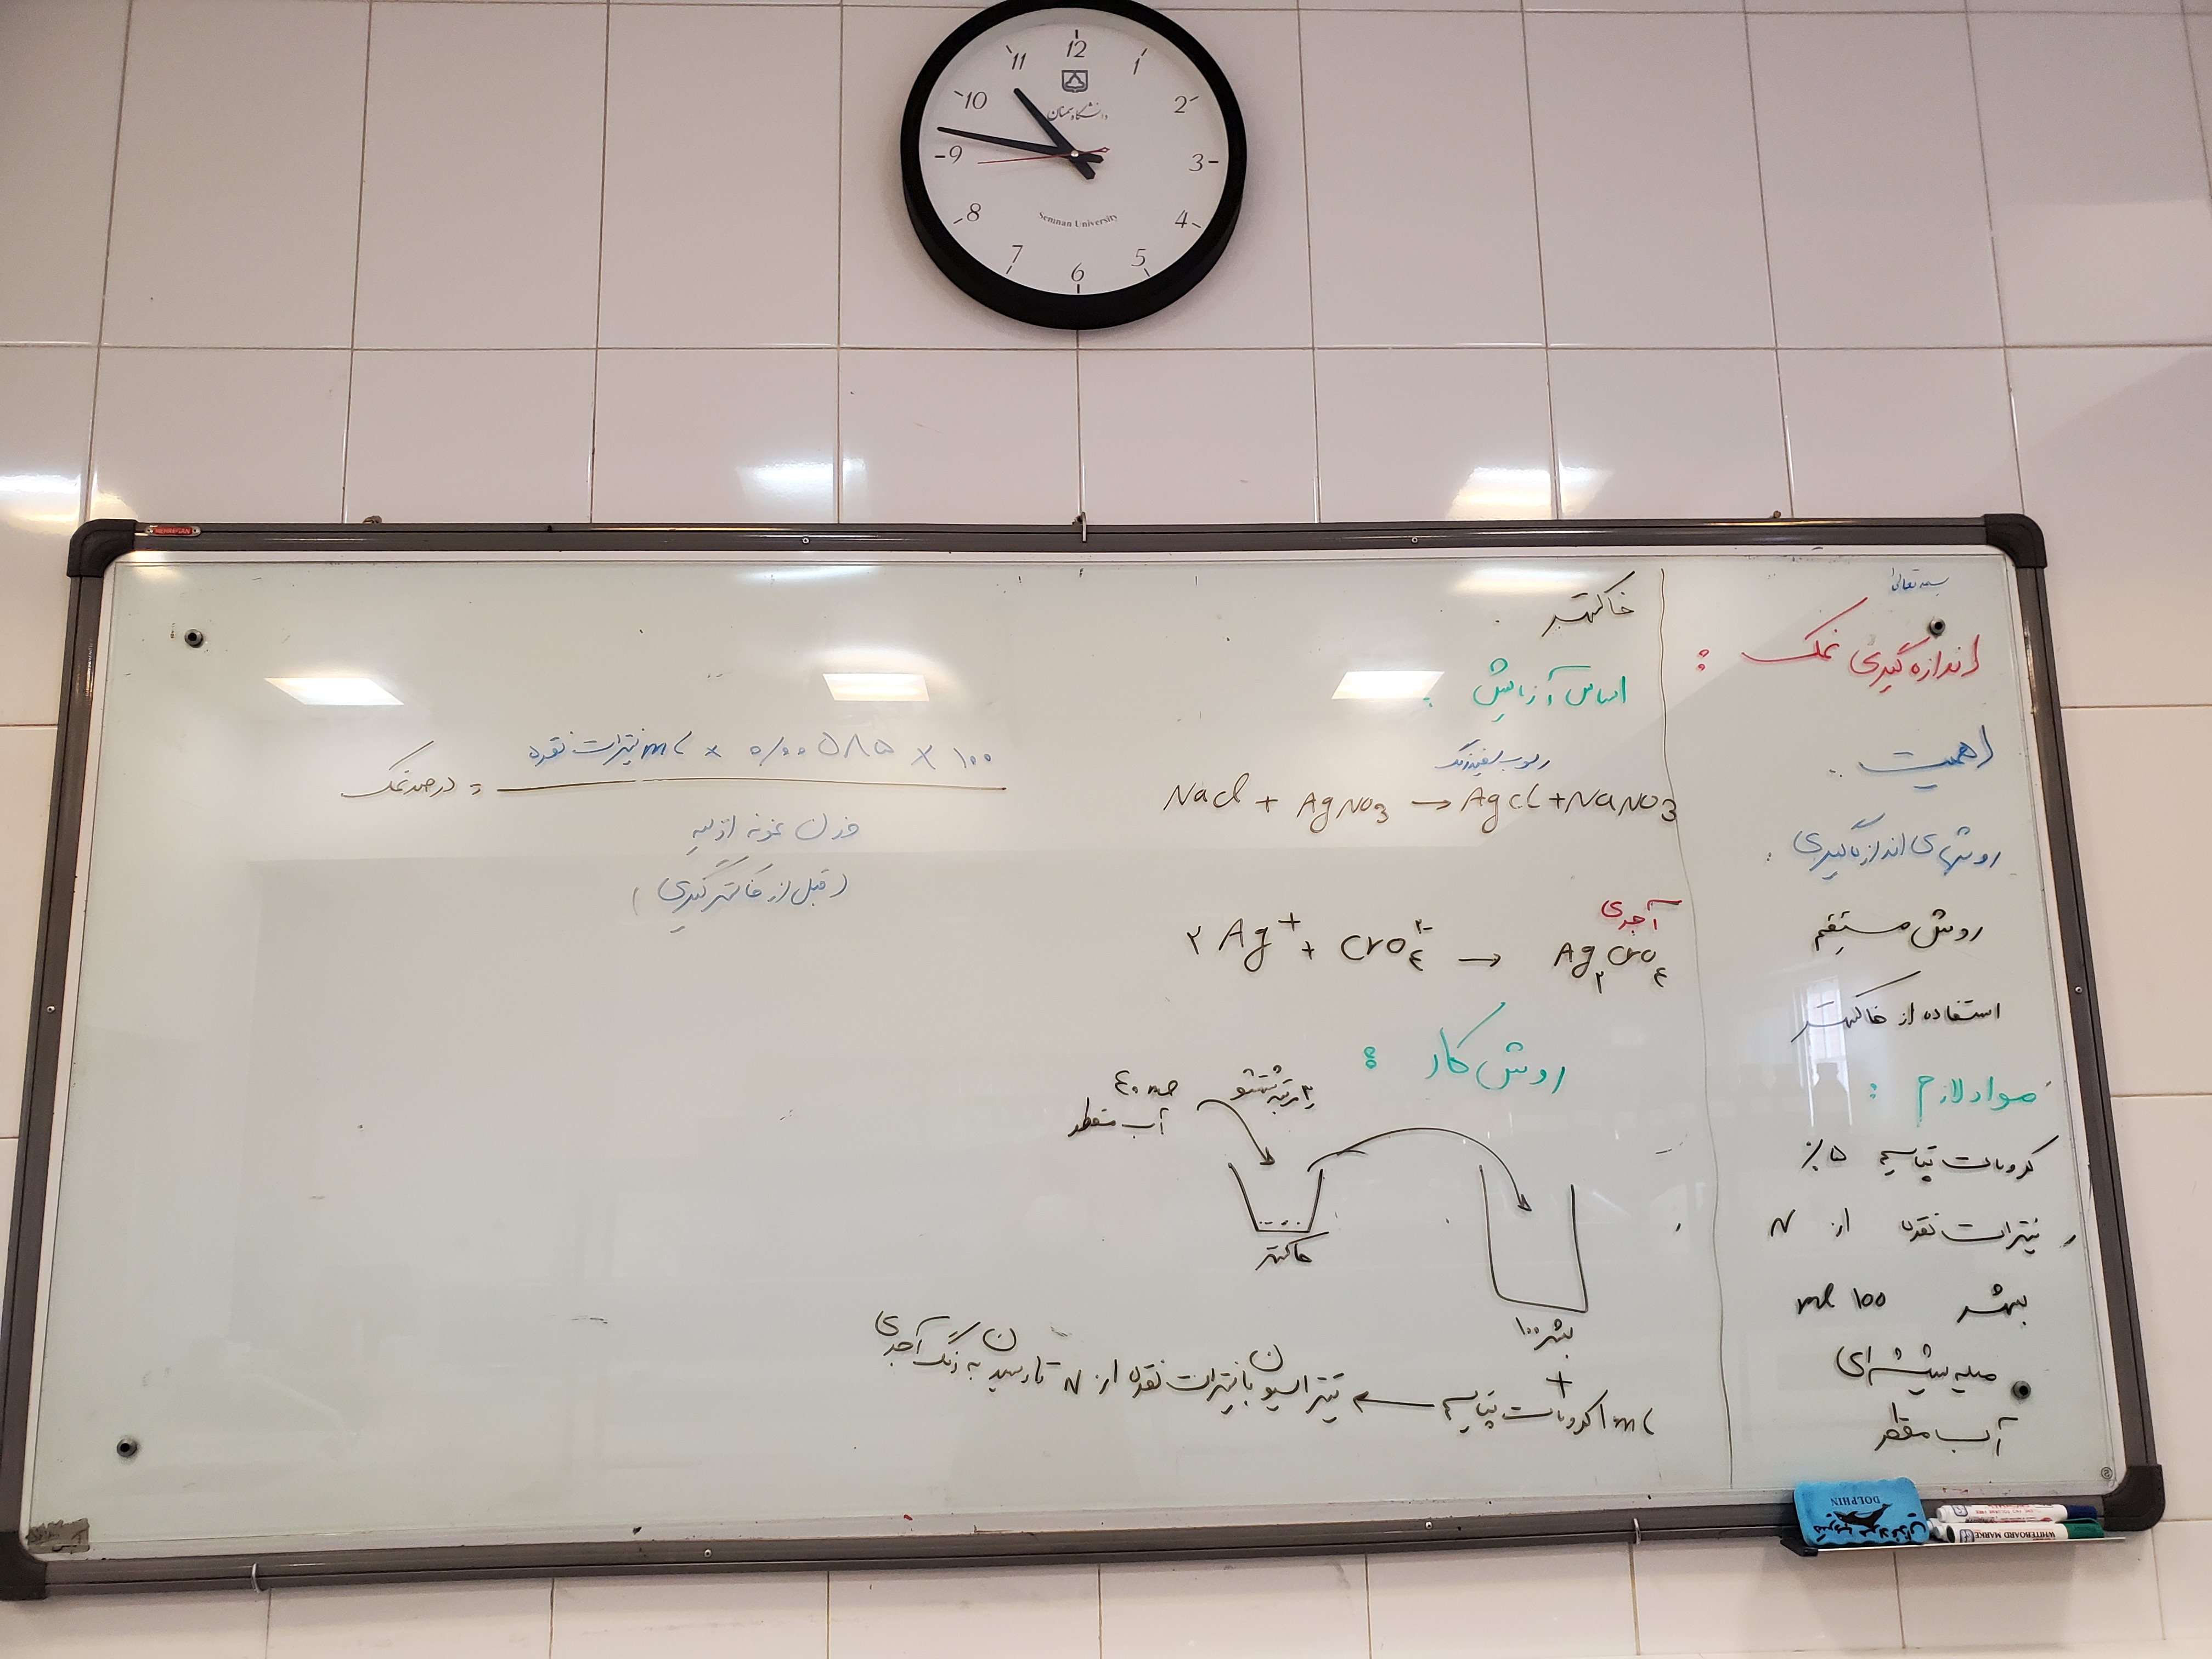 12
11
1
10
2
9
3
8
4
7
5
6
دانشگاه سمنان
Semnan University
بسمه تعالی
اندازه گیری نمک :
اهمیت :
روشهای اندازه گیری :
روش مستقیم
استفاده از خاکستر
مواد لازم :
کرومات پتاسیم ۵٪
نیترات نقره ۰/۱ N
بشر ۱۰۰ ml
میله شیشه‌ای
آب مقطر
خاکستر
اساس آزمایش :
رسوب سفیدرنگ
NaCl + AgNO3 → AgCl + NaNO3
آجری
۲ Ag+ + CrO۴۲- → Ag۲CrO۴
روش کار :
۲ مرتبه شستشو
۴۰ cc
آب مقطر
خاکستر
بشر ۱۰۰
+
۱ ml کرومات پتاسیم ← تیتراسیون با نیترات نقره ۰/۱ N تا رسیدن به رنگ آجری
درصد نمک = ml نیترات نقره × ۰/۰۰۵۸۵ × ۱۰۰
وزن نمونه اولیه
(قبل از خاکسترگیری)
DOLPHIN
WHITEBOARD MARKER